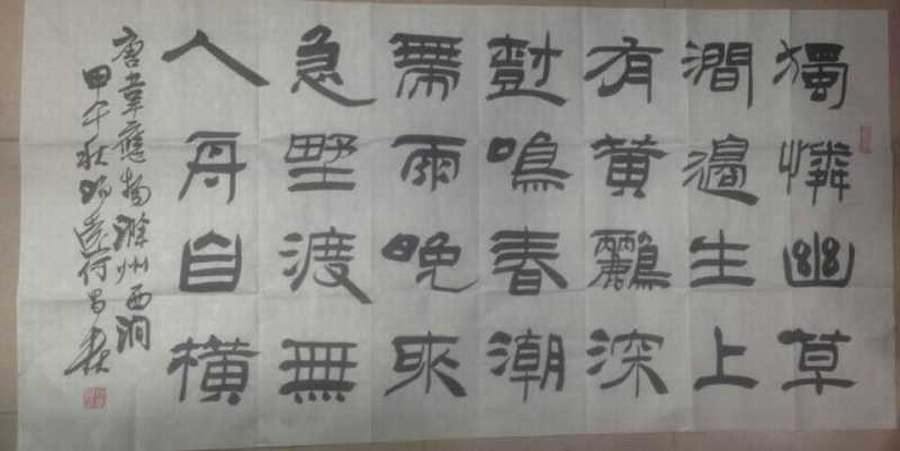 獨憐幽草
澗邊生上
有黃鸝深
樹鳴春潮
帶雨晚來
急野渡無
人舟自橫
唐韋應物滁州西澗
甲午秋